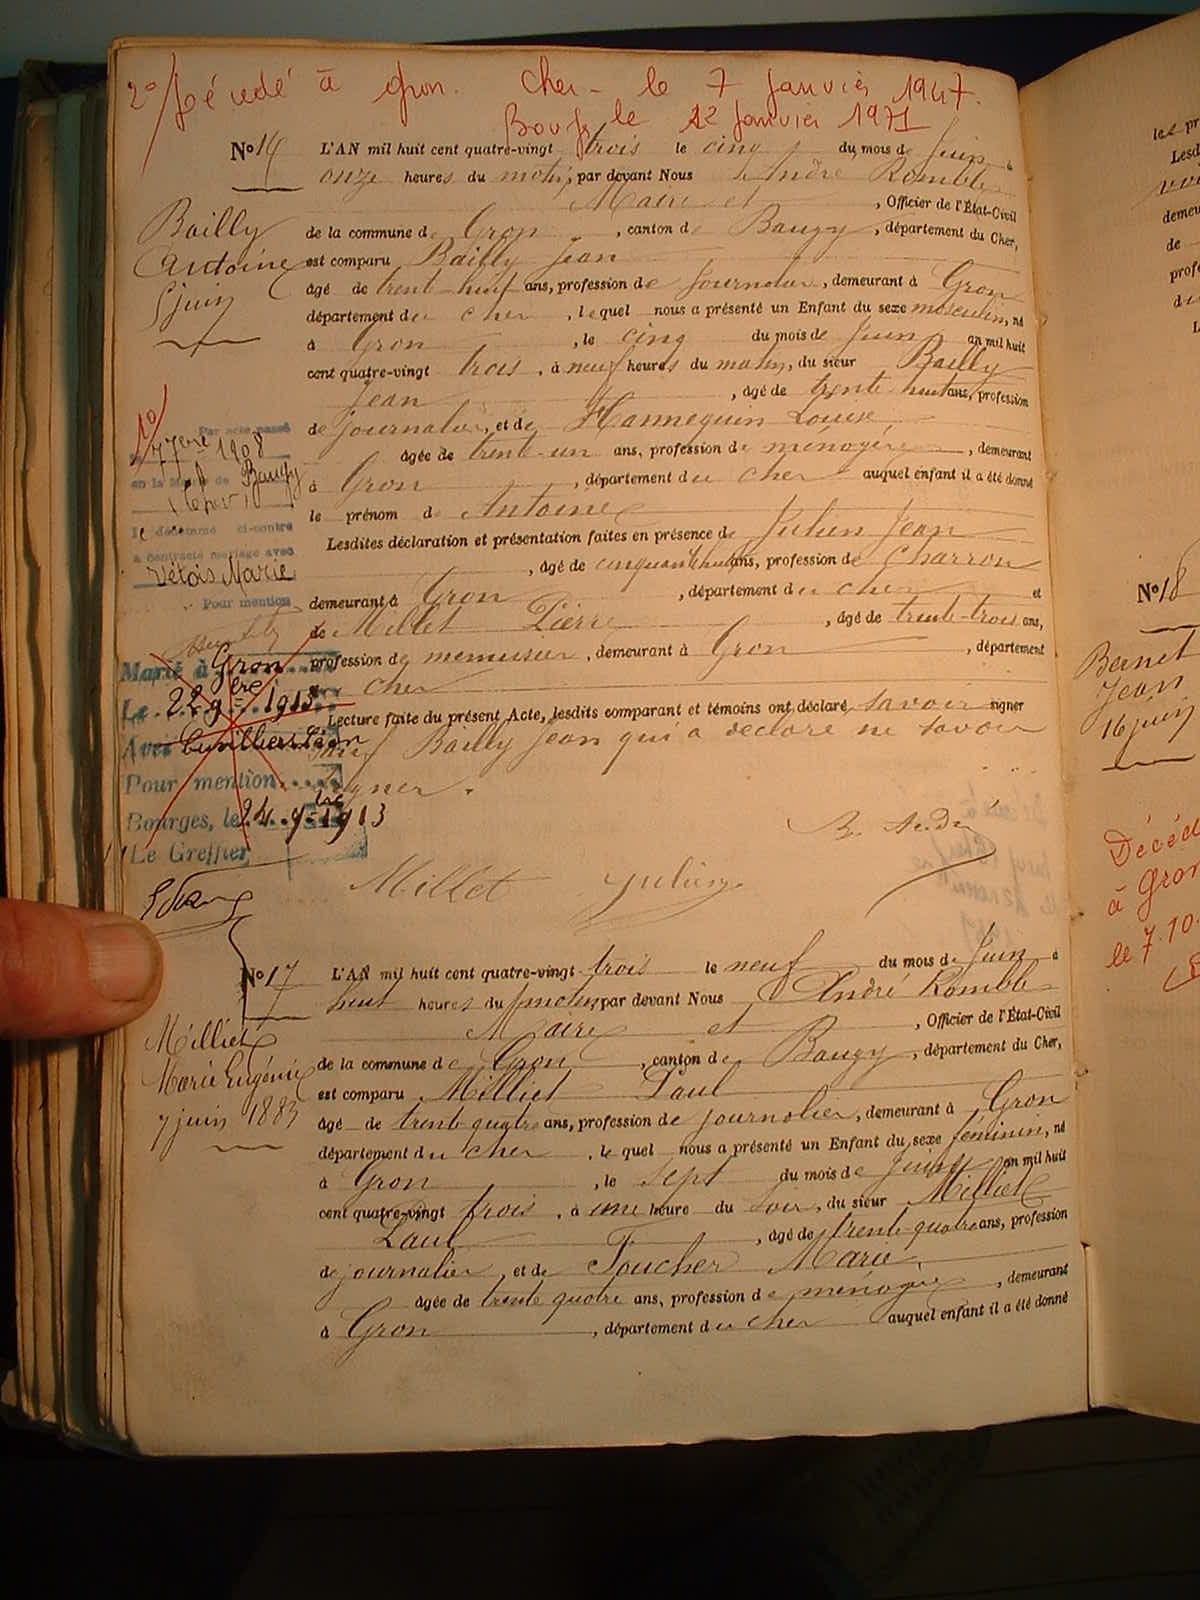 2° Décédé à Gron. Cher - le 7 Janvier 1947.
le 12 Janvier 1971
L'AN mil huit cent quatre-vingt trois le cinq du mois de Juin à
onze heures du matin, par devant Nous André Romble
Maire et , Officier de l'État-Civil
de la commune de Gron , canton de Baugy , département du Cher,
est comparu Bailly Jean
âgé de trente-huit ans, profession de Journalier, demeurant à Gron
département du cher , lequel nous a présenté un Enfant du sexe masculin, né
à Gron , le cinq du mois de Juin an mil huit
cent quatre-vingt trois , à neuf heures du matin, du sieur Bailly
Jean , âgé de trente huit ans, profession
de journalier, et de Hannequin Louise
âgée de trente-un ans, profession de ménagère , demeurant
à Gron , département du cher auquel enfant il a été donné
le prénom de Antoine
Lesdites déclaration et présentation faites en présence de Julien Jean
, âgé de cinquante huit ans, profession de Charron
demeurant à Gron , département du cher et
de Millet Pierre , âgé de trente-trois ans,
profession de menuisier , demeurant à Gron , département
cher
Lecture faite du présent Acte, lesdits comparant et témoins ont déclaré savoir signer
sauf Bailly Jean qui a déclaré ne savoir
signer.
Millet Julien
Bailly
Antoine
5 juin
1°
Par acte passé
le 7 7bre 1908
en la Mairie de Baugy
(Cher)
le dénommé ci-contre
a contracté mariage avec
Vétois Marie
Pour mention
Marié à Gron
Le 22 9bre 1913
Avec Cuvilliers Léon
Pour mention
Bourges, le 24 9bre 1913
Le Greffier
N° 17 L'AN mil huit cent quatre-vingt trois le neuf du mois de Juin à
huit heures du matin, par devant Nous André Romble
Maire et , Officier de l'État-Civil
de la commune de Gron , canton de Baugy , département du Cher,
est comparu Milliet Paul
âgé de trente quatre ans, profession de journalier, demeurant à Gron
département du cher , lequel nous a présenté un Enfant du sexe féminin, né
à Gron , le sept du mois de juin an mil huit
cent quatre-vingt trois , à une heure du soir, du sieur Milliet
Paul , âgé de trente quatre ans, profession
de journalier , et de Foucher Marie,
âgée de trente quatre ans, profession de ménagère , demeurant
à Gron , département du cher auquel enfant il a été donné
Milliet
Marie Eugénie
7 juin 1883
N° 18
Bernet
Jean
16 juin
Décédé
à Gron
le 7.10.